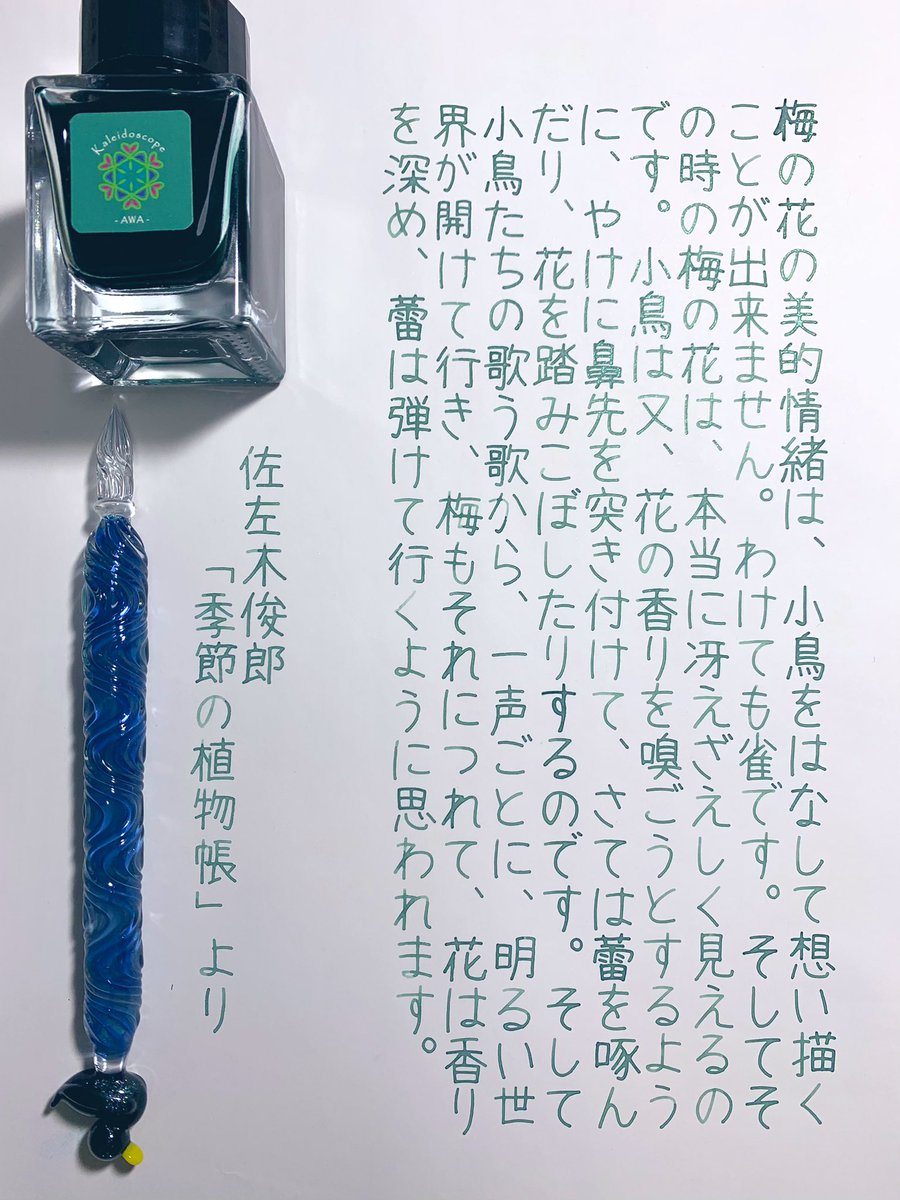 梅の花の美的情緒は、小鳥をはなして想い描く
ことが出来ません。わけても雀です。そしてそ
の時の梅の花は、本当に冴えざえしく見えるの
です。小鳥は又、花の香りを嗅ごうとするよう
に、やけに鼻先を突き付けて、さては蕾を啄ん
だり、花を踏みこぼしたりするのです。そして
小鳥たちの歌う歌から、一声ごとに、明るい世
界が開けて行き、梅もそれにつれて、花は香り
を深め、蕾は弾けて行くように思われます。
佐左木俊郎
「季節の植物帳」より
Kaleidoscope
-AWA-